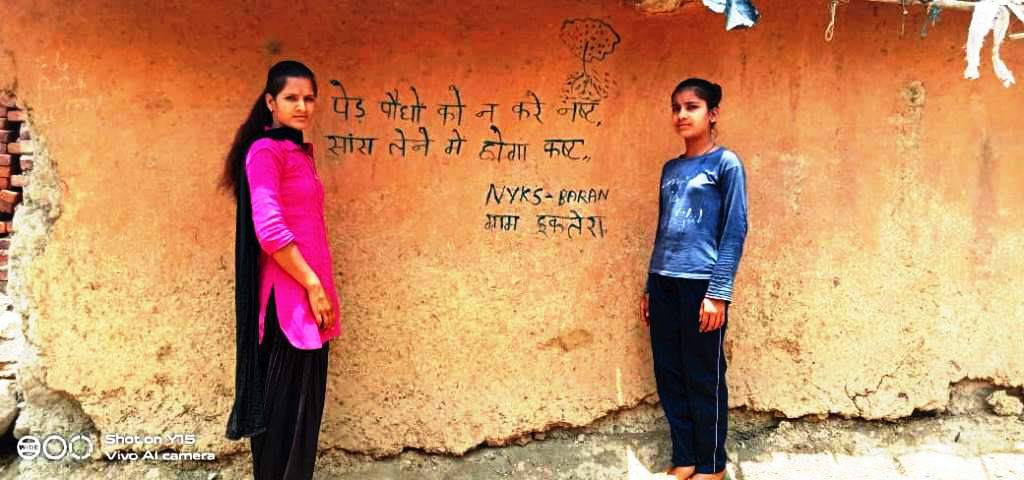 पेड़ पौधो को न करे नष्ट,
सांस लेने मे होगा कष्ट,,
NYKS-BARAN
ग्राम इकलेरा
Shot on Y15
Vivo AI camera